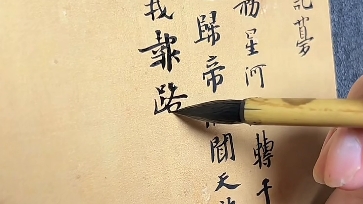 記夢
霧星河轉千
歸帝聞天
我報路